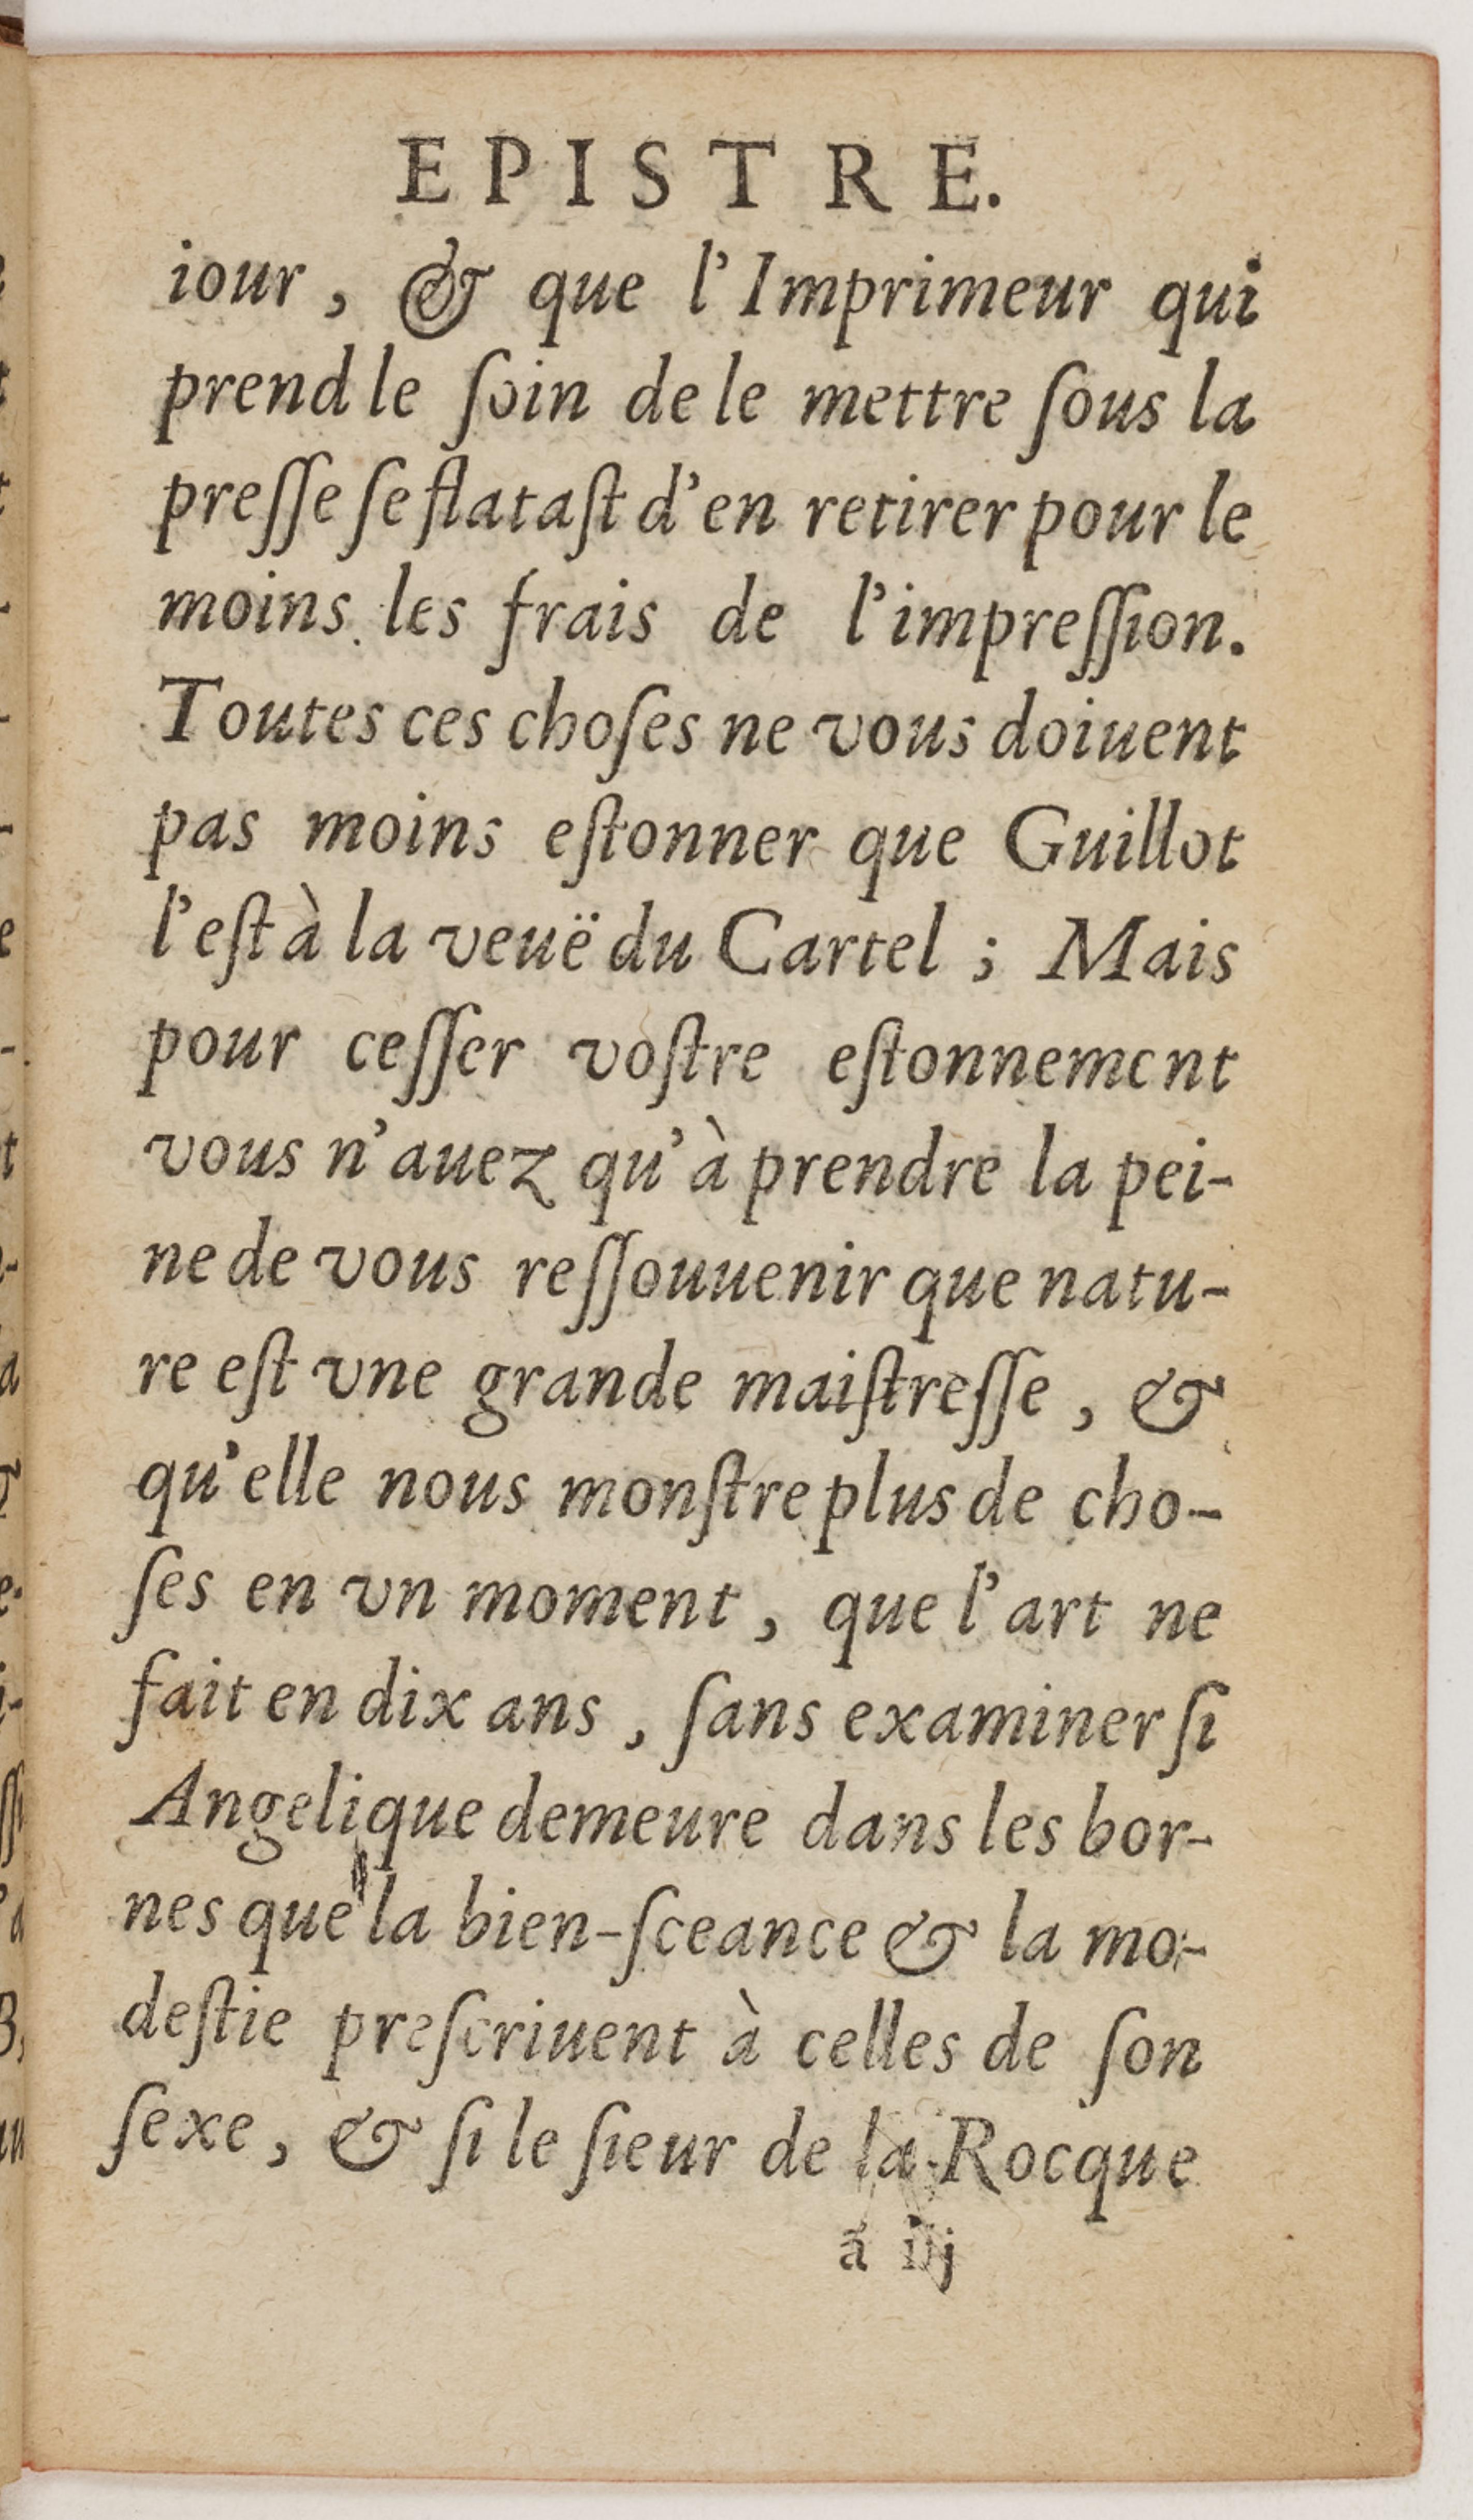 EPISTRE.
iour, & que l'Imprimeur qui
prend le ſoin de le mettre ſous la
preſſe ſe flataſt d'en retirer pour le
moins les frais de l'impreſſion.
Toutes ces choſes ne vous doiuent
pas moins eſtonner que Guillot
l'eſt à la veuë du Cartel ; Mais
pour ceſſer voſtre eſtonnement
vous n'auez qu'à prendre la pei-
ne de vous reſſouuenir que natu-
re eſt vne grande maiſtreſſe, &
qu'elle nous monſtre plus de cho-
ſes en vn moment, que l'art ne
fait en dix ans, ſans examiner ſi
Angelique demeure dans les bor-
nes que la bien-ſceance & la mo-
deſtie preſcriuent à celles de ſon
ſexe, & ſi le ſieur de la Rocque
a iij